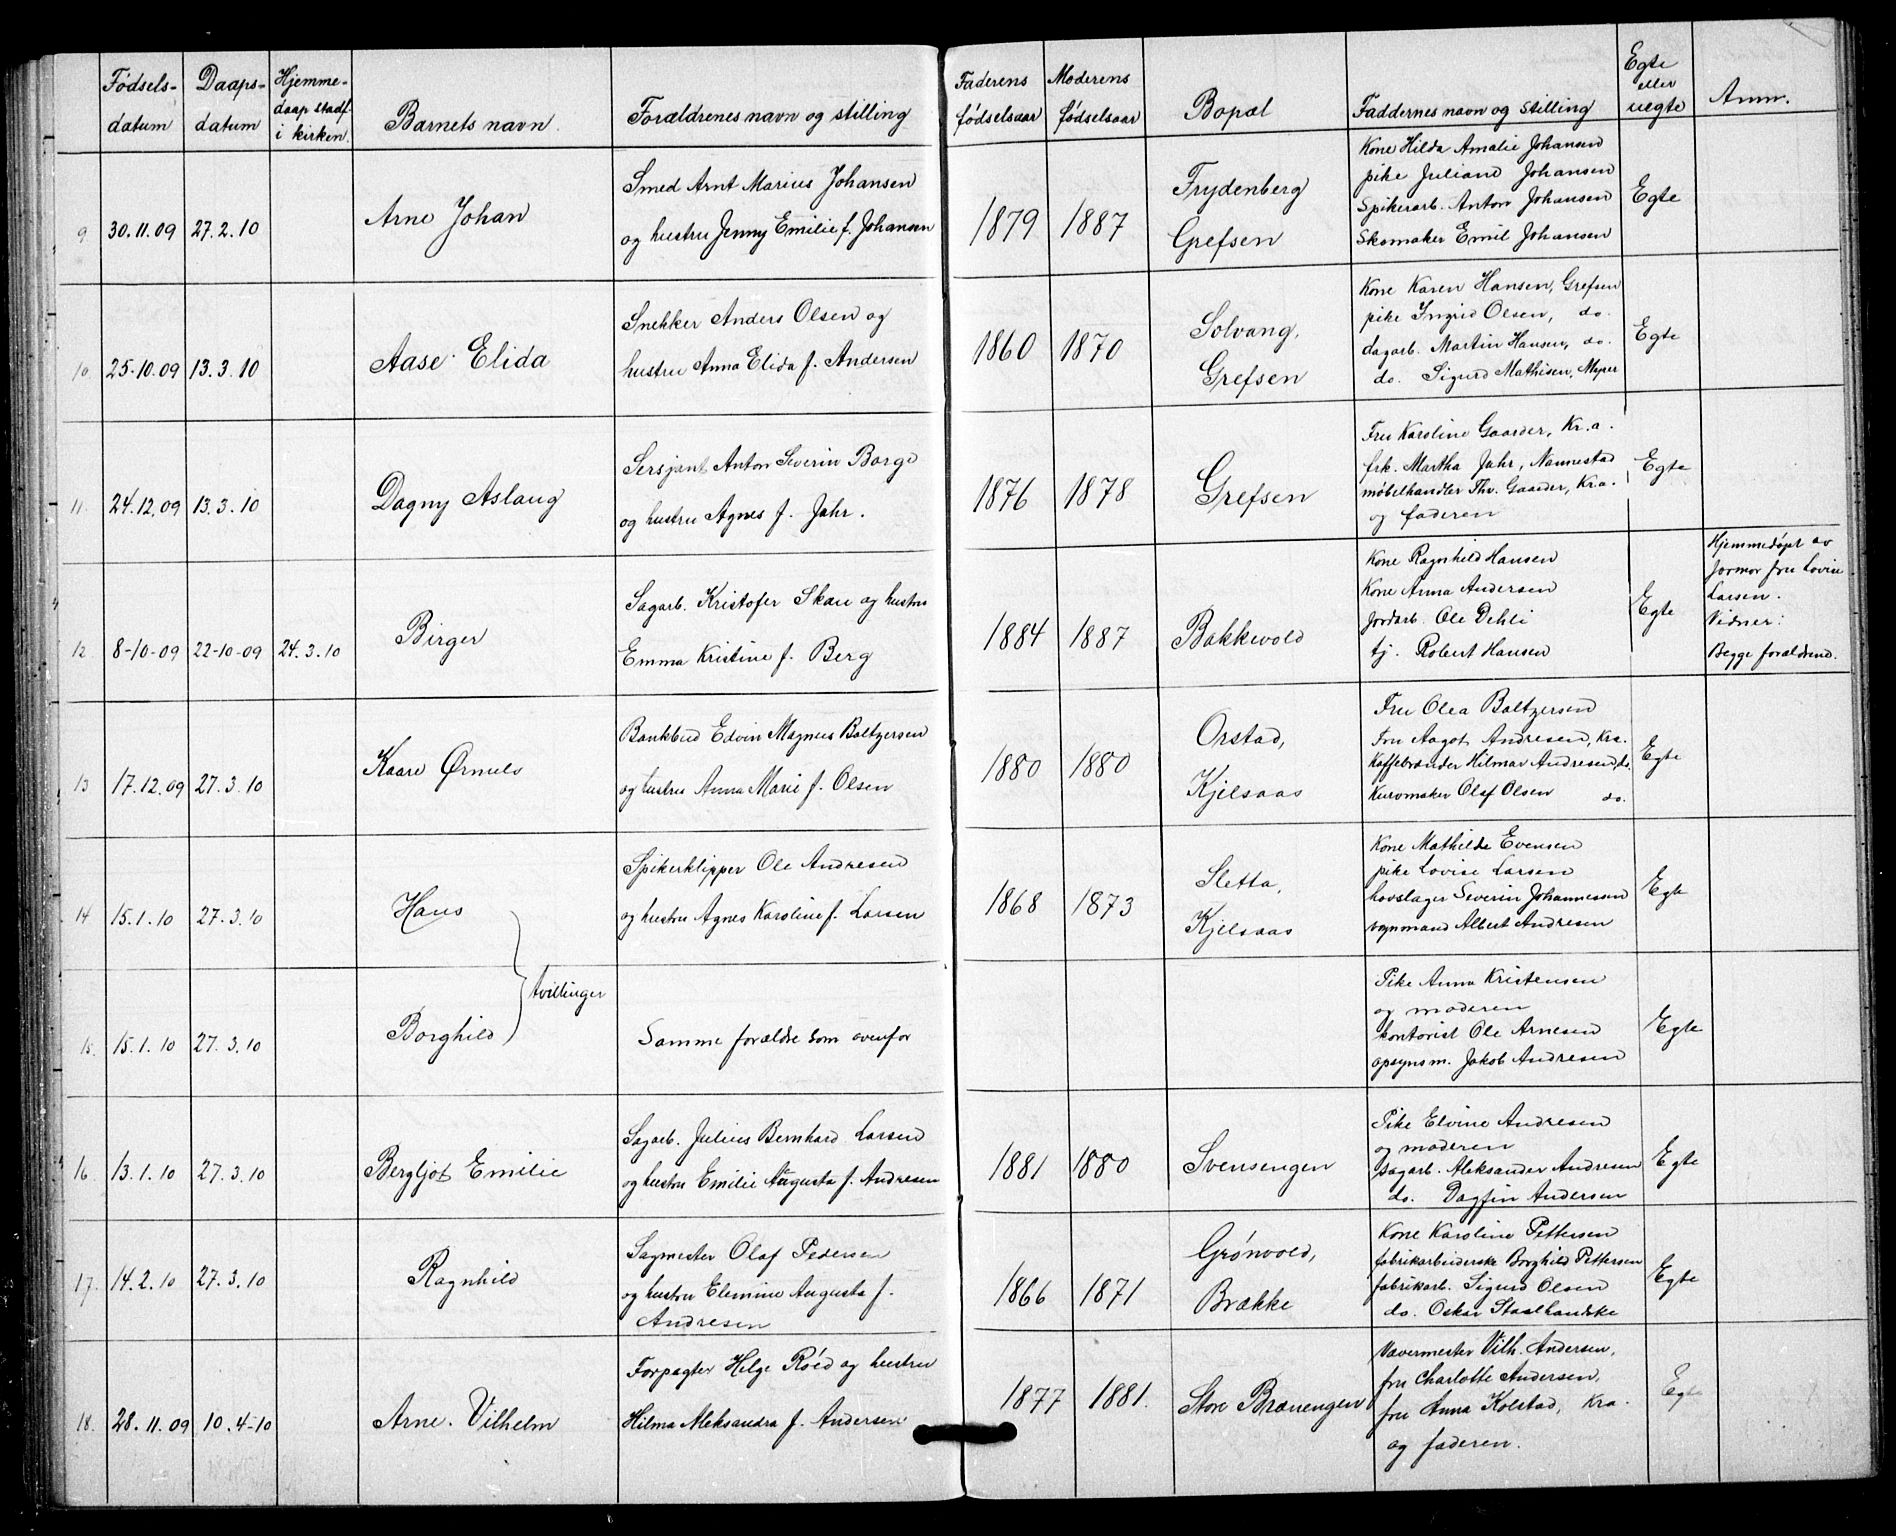 Fødsels-datum | Daaps-datum | Hjemme-daap stadf. i kirken. | Barnets navn. | Forældrenes navn og stilling | Faderens fødselsaar | Moderens fødselsaar | Bopæl | Faddernes navn og stilling | Egte eller uegte | Anm.
9 30.11.09 27.2.10 Arne Johan
Smed Arnt Marius Johansen
og hustru Jenny Emilie f. Johansen
1879 1887
Frydenberg
Grefsen
Kone Hilda Amalie Johansen
pike Juliane Johansen
Spikerarb. Anton Johansen
Skomaker Emil Johansen
Egte
10. 25.10.09 13.3.10 Aase Elida
Snekker Anders Olsen og
hustru Anna Elida f. Andersen
1860 1870
Solvang,
Grefsen
Kone Karen Hansen, Grefsen
pike Ingrid Olsen, do.
dagarb. Martin Hansen, do.
do. Sigurd Mathisen, Myrer
Egte
11. 24.12.09 13.3.10 Dagny Aslaug
Sersjant Anton Severin Borge
og hustru Agnes f. Jahr.
1876 1878
Grefsen
Fru Karoline Gaarder, Kr.a.
frk. Martha Jahr, Nannestad
møbelhandler Thv. Gaarder, Kr.a.
og faderen
Egte
12. 8-10-09 22-10-09 24.3.10 Birger
Sagarb. Kristofer Skau og hustru
Emma Kristine f. Berg
1884 1887
Bakkevold
Kone Ragnhild Hansen
Kone Anna Andersen
Jordarb. Ole Dehli
tj. Robert Hansen
Egte
Hjemmedøpt av
farmor fru Lovise
Larsen.
Vidner:
Begge forældrene.
13 17.12.09 27.3.10 Kaare Ørnuls
Bankbud Edvin Magnus Baltzersen
og hustru Anna Marie f. Olsen
1880 1880
Orstad,
Kjelsaas
Fru Olea Baltzersen
Fru Aagot Andresen, Kra.
Kaffebrænder Hilmar Andresen, do.
Kurvmaker Olaf Olsen do.
Egte
14 15.1.10 27.3.10 Hans
Spikerklipper Ole Andresen
og hustru Agnes Karoline f. Larsen
1868 1873
Sletta,
Kjelsaas
Kone Mathilde Evensen
pike Lovise Larsen
hovslager Severin Johannessen
vognmand Albert Andresen
Egte
tvillinger
15. 15.1.10 27.3.10 Borghild
Samme forældre som ovenfor
Pike Anna Kristensen
og moderen
kontorist Ole Arnesen
opsynsm. Jakob Andresen
Egte
16 13.1.10 27.3.10 Bergljot Emilie
Sagarb. Julius Bernhard Larsen
og hustru Emilie Augusta f. Andresen
1881 1880
Svensengen
Pike Elvine Andresen
og moderen
sagarb. Aleksander Andresen
do. Dagfin Andersen
Egte
17. 14.2.10 27.3.10 Ragnhild
Sagmester Olaf Pedersen
og hustru Elemine Augusta f.
Andresen
1866 1871
Grønvold,
Brække
Kone Karoline Pettersen
fabrikarbeiderske Borghild Pettersen
fabrikarb. Sigurd Olsen
do. Oskar Staalhandske
Egte
18. 28.11.09 10.4-10 Arne Vilhelm
Forpagter Helge Røed og hustru
Hilma Aleksandra f. Andersen
1877 1881.
Store Brænengen
Vævermester Vilh. Andersen,
fru Charlotte Andersen,
fru Anna Kolstad, Kra.
og faderen.
Egte